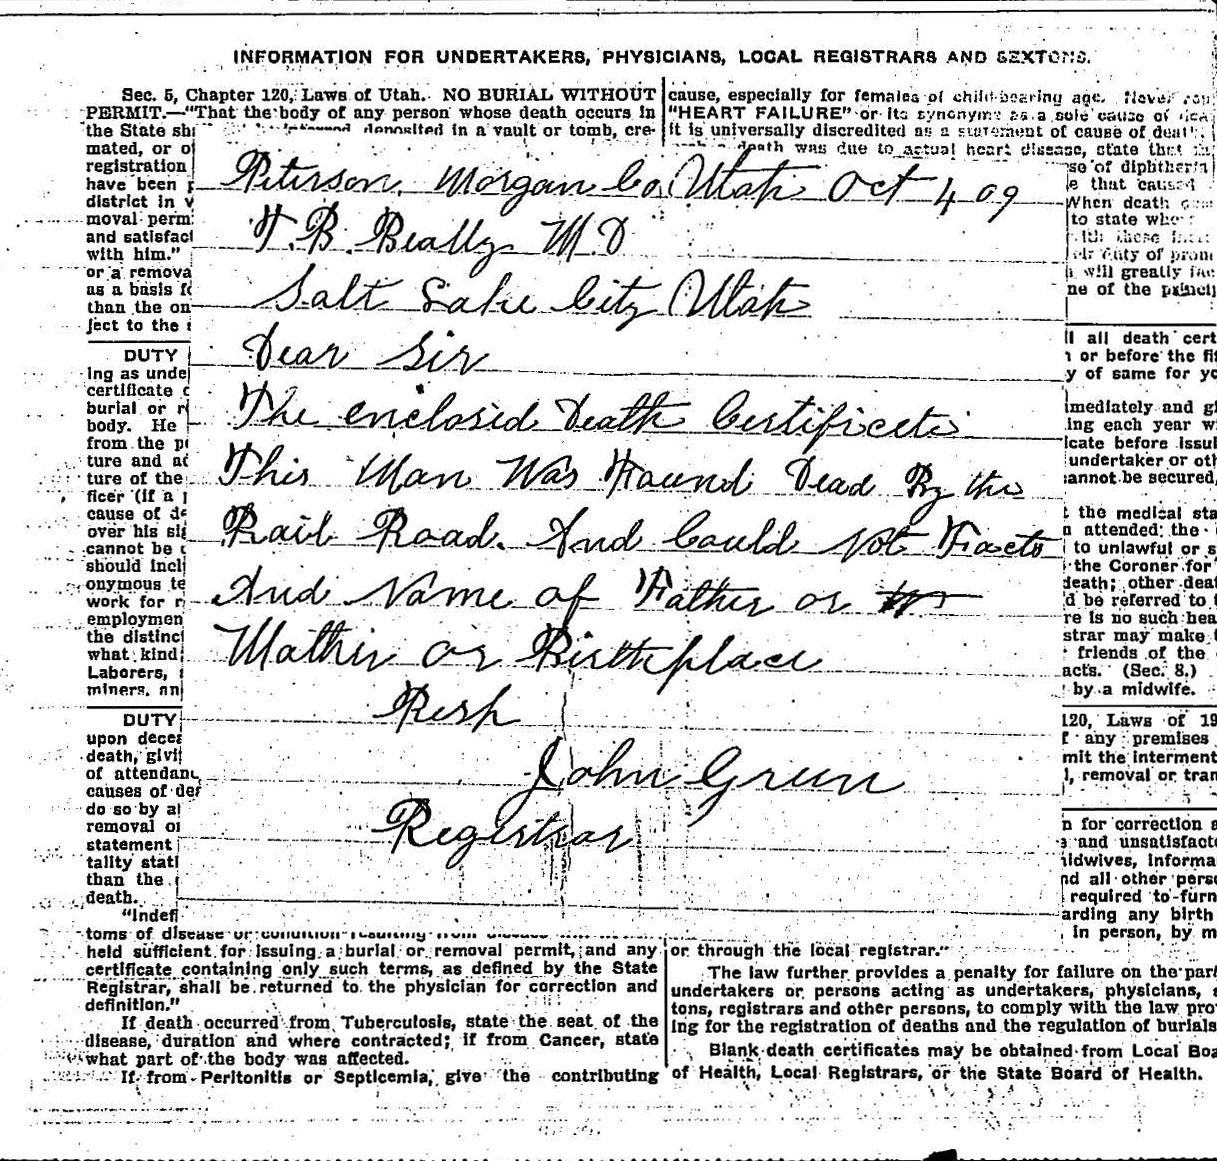 INFORMATION FOR UNDERTAKERS, PHYSICIANS, LOCAL REGISTRARS AND SEXTONS.
Sec. 5, Chapter 120, Laws of Utah. NO BURIAL WITHOUT
PERMIT.—"That the body of any person whose death occurs in
the State sh
deposited in a vault or tomb, cre-
mated, or o
registration
have been
district in
moval perm
and satisfact
with him."
or a remova
as a basis f
than the on
ject to the
DUTY
ing as unde
certificate
burial or r
body. He
from the p
ture and a
ture of the
ficer (if a
cause of de
over his si
cannot be
should incl
onymous te
work for
employmen
the distinc
what kind
Laborers,
miners, an
DUTY
upon decea
death, givi
of attendan
causes of de
do so by a
removal o
statement
tality stati
than the
death.
"Indef
toms of disease or condition resulting from disease
held sufficient for issuing a burial or removal permit, and any
certificate containing only such terms, as defined by the State
Registrar, shall be returned to the physician for correction and
definition."
If death occurred from Tuberculosis, state the seat of the
disease, duration and where contracted; if from Cancer, state
what part of the body was affected.
If from Peritonitis or Septicemia, give the contributing
cause, especially for females of child-bearing age. Never
"HEART FAILURE" or its synonyms as a sole cause of
it is universally discredited as a statement of cause of death.
death was due to actual heart disease, state that
se of diphtheria
e that caused
When death
to state whe
with these
duty of
will greatly
ne of the
ll all death cert
or before the fi
y of same for yo
mediately and gi
ing each year w
icate before issu
undertaker or oth
cannot be secured,
the medical sta
n attended: the
to unlawful or s
the Coroner for
death; other dea
d be referred to
re is no such hea
strar may make
friends of the
acts. (Sec. 8.)
by a midwife.
120, Laws of 19
f any premises
mit the interment
l, removal or tran
n for correction
s and unsatisfacto
midwives, informa
nd all other perso
required to furn
arding any birth
in person, by m
or through the local registrar."
The law further provides a penalty for failure on the part
undertakers or persons acting as undertakers, physicians,
tons, registrars and other persons, to comply with the law pro
ing for the registration of deaths and the regulation of burials
Blank death certificates may be obtained from Local Boa
of Health, Local Registrars, or the State Board of Health.
Peterson Morgan Co Utah Oct 4 09
T. B. Beatty M D
Salt Lake City Utah
Dear Sir
The enclosed Death Certificete
This Man Was Found Dead By the
Rail Road. And Could Not Facts
And Name of Father or
Mother or Birthplace
Resp
John Green
Registrar